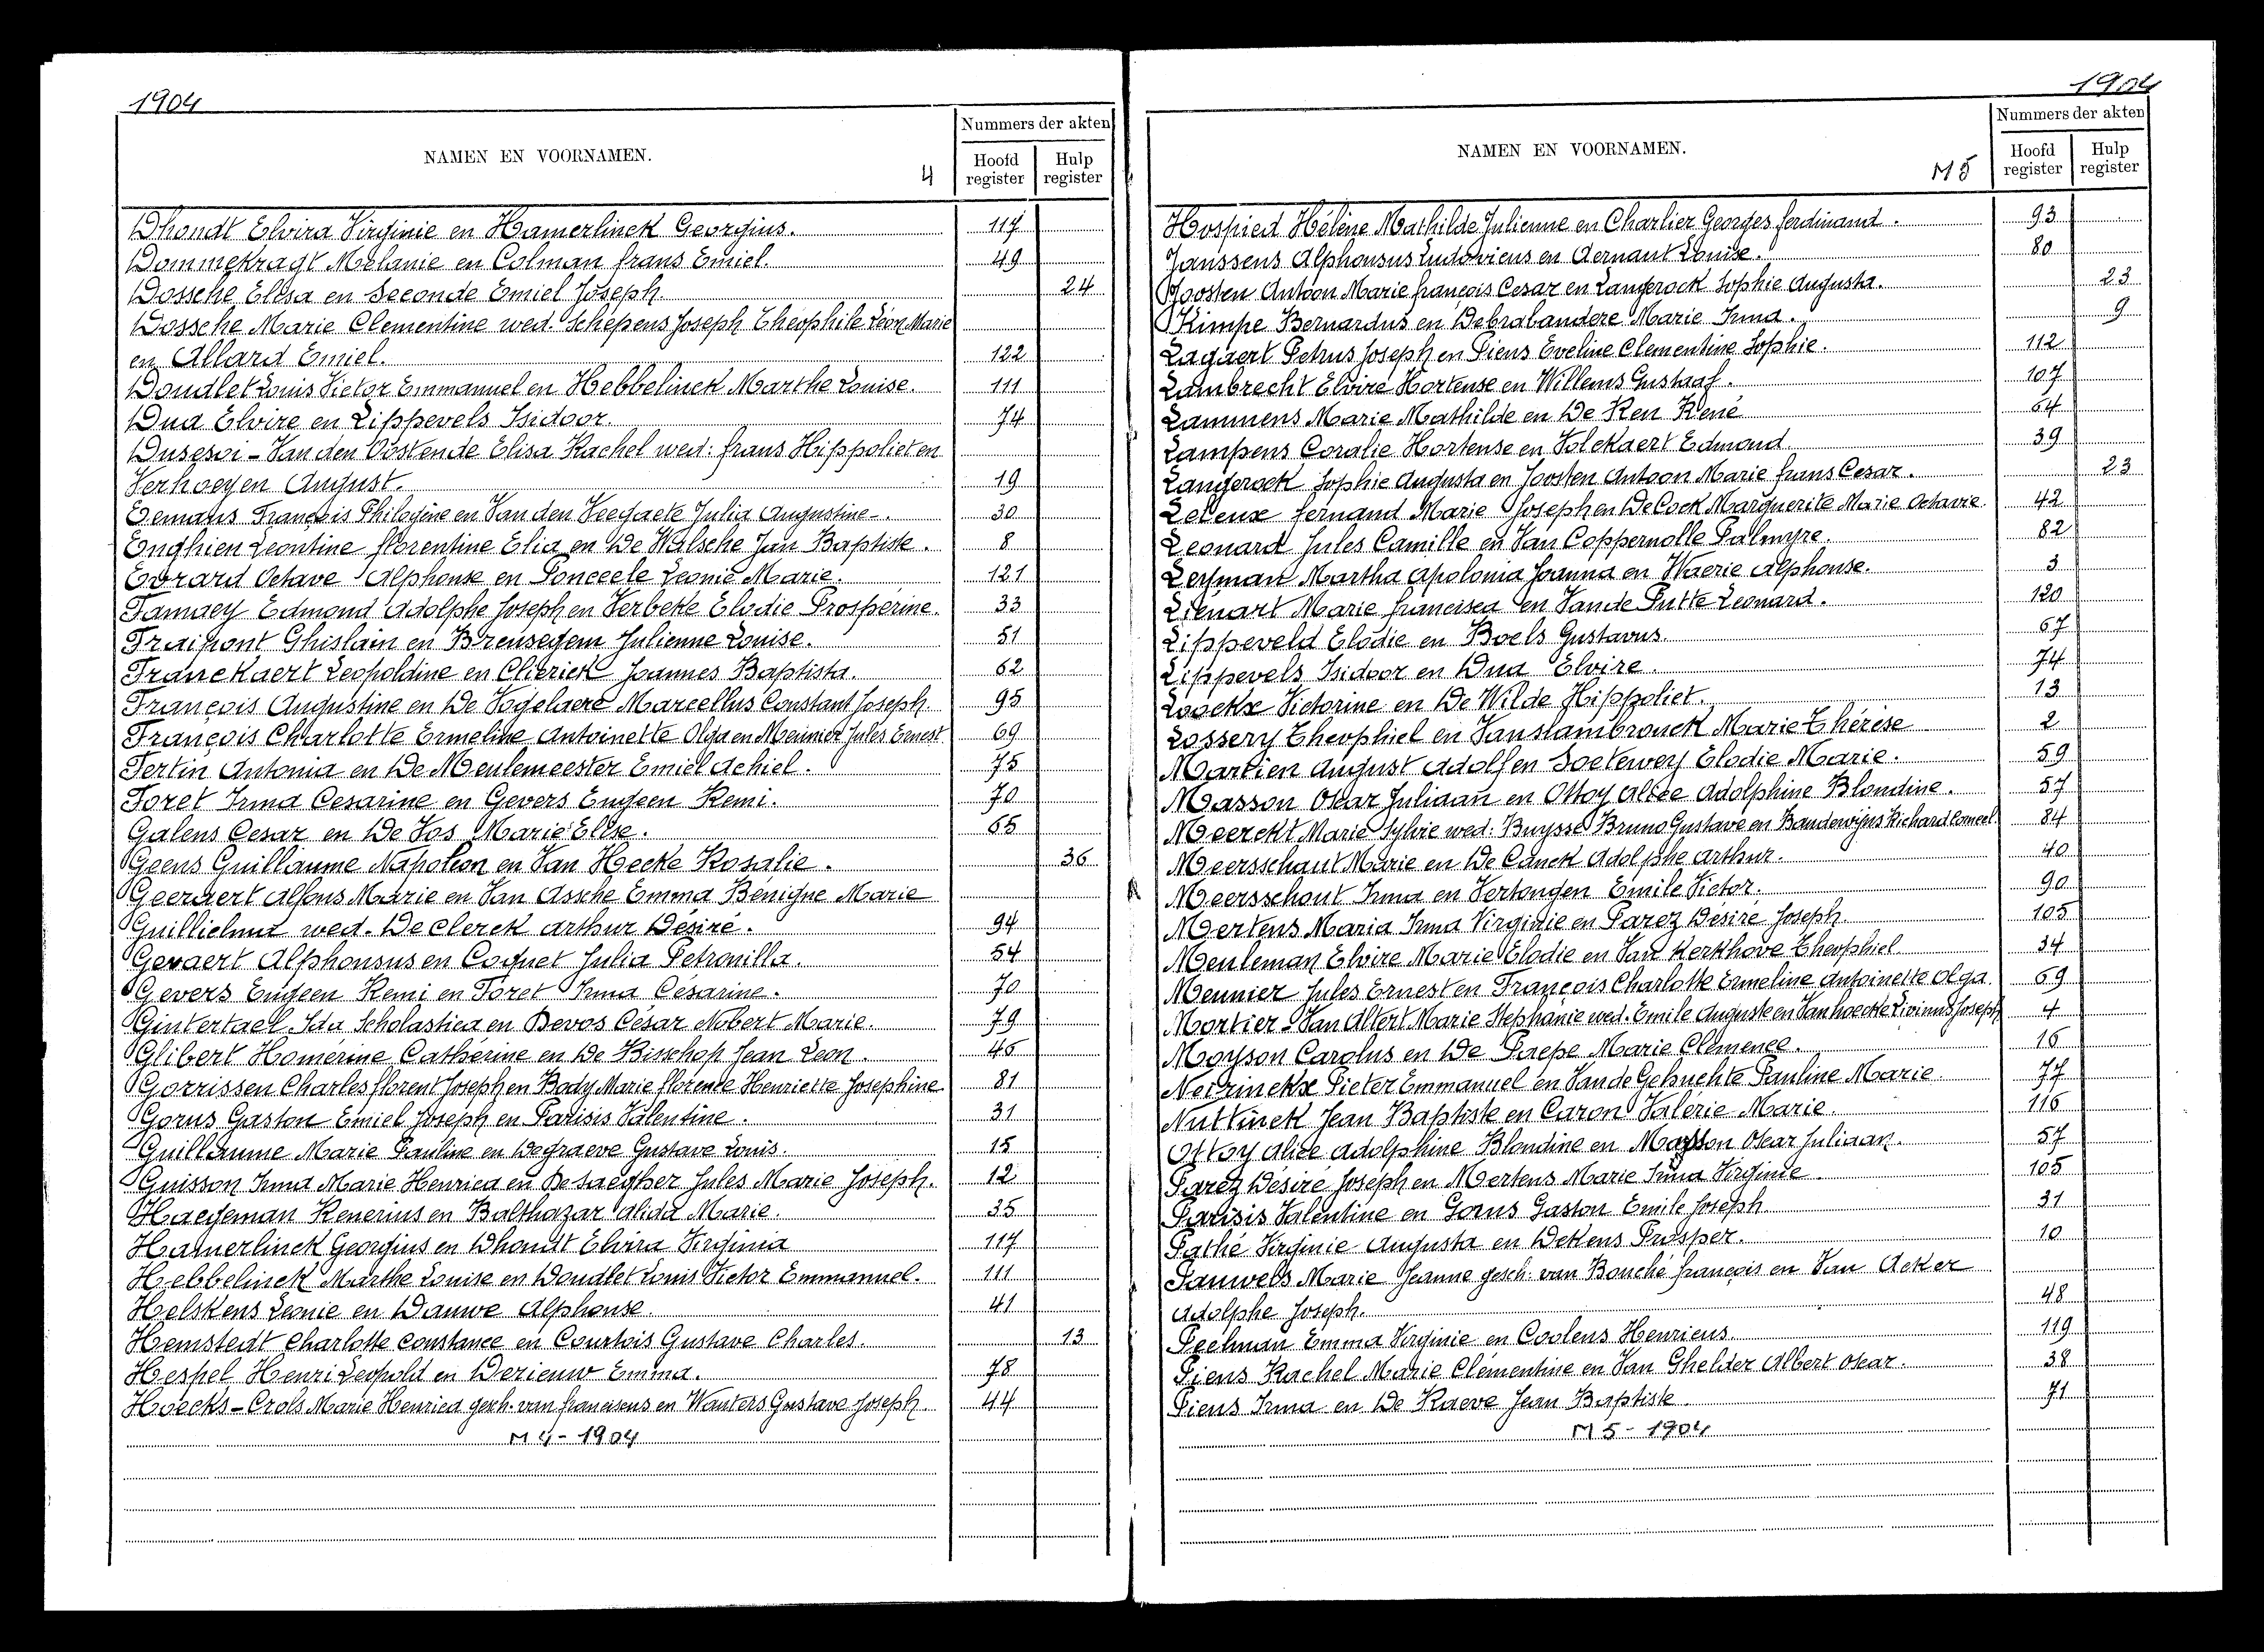 1904
NAMEN EN VOORNAMEN.
4
Nummers der akten
Hoofd register
Hulp register
Dhondt Elvira Virginie en Hamerlinck Georgius. 117
Dommekragt Melanie en Colman frans Emiel. 49
Dossche Elisa en Seconde Emiel Joseph. 24
Dossche Marie Clementine wed. Schepens Joseph Theophile Léon Marie
en Allard Emiel. 122
Doudlet Louis Victor Emmanuel en Hebbelinck Marthe Louise. 111
Dua Elvire en Lippevels Isidoor. 74
Dusesoi - Van den Oostende Elisa Rachel wed: frans Hippoliet en
Verhoeyen August. 19
Eemans François Philogène en Van den Veegaete Julia Augustine -. 30
Enghien Leontine florentine Elia en De Walsche Jan Baptiste. 8
Evrard Octave Alphonse en Ponceele Leonie Marie. 121
Famaey Edmond Adolphe Joseph en Verbeke Elodie Prosperine. 33
Fraipont Ghislain en Breusegem Julienne Louise. 51
Franckaert Leopoldine en Clierick Joannes Baptista. 62
François Augustine en De Vogelaere Marcellus Constant Joseph. 95
François Charlotte Ermeline Antoinette Olga en Meunier Jules Ernest 69
Fertin Antonia en De Meulemeester Emiel Achiel. 75
Foret Irma Cesarine en Gevers Eugeen Remi. 70
Galens Cesar en De Vos Marie Elise. 65
Geens Guillaume Napoleon en Van Hecke Rosalie. 36
Geeraert Alfons Marie en Van Assche Emma Bénigne Marie
Guillielma wed. De Clerck Arthur Désiré. 94
Gevaert Alphonsus en Coquet Julia Petronilla. 54
Gevers Eugeen Remi en Foret Irma Césarine. 70
Gintertael Ida Scholastica en Bevos César Nobert Marie. 79
Glibert Homérine Catherine en De Bisschop Jean Leon. 46
Gorrissen Charles florent Joseph en Body Marie florence Henriette Josephine 81
Gorus Gaston Emiel Joseph en Parisis Valentine. 31
Guillaume Marie Pauline en Degraeve Gustave Louis. 15
Guisson Irma Marie Henrica en De Saegher Jules Marie Joseph. 12
Haegeman Renerius en Balthazar Alida Marie. 35
Hamerlinck Georgius en Dhondt Elvira Virginia 117
Hebbelinck Marthe Louise en Doudlet Louis Victor Emmanuel. 111
Helskens Leonie en Dauwe Alphonse. 41
Hemstedt Charlotte Constance en Courtois Gustave Charles. 13
Hespel Henri Leopold en Derieuw Emma. 78
Hoecks - Crols Marie Henrica gesch. van franciscus en Wauters Gustave Joseph. 44
M 4 - 1904
1904
NAMEN EN VOORNAMEN.
M 5
Nummers der akten
Hoofd register
Hulp register
Hospied Hélène Mathilde Julienne en Charlier Georges ferdinand. 93
Janssens Alphonsus Ludovicus en Aernaut Louise. 80
Joosten Antoon Marie francois Cesar en Langerock Sophie Augusta. 23
Kimpe Bernardus en Debrabandere Marie Irma. 9
Lagaert Petrus Joseph en Piens Eveline Clementine Sophie. 112
Lambrecht Elvire Hortense en Willems Gustaaf. 107
Lammens Marie Mathilde en De Ken René 64
Lampens Coralie Hortense en Volckaert Edmond. 39
Langerock Sophie Augusta en Joosten Antoon Marie frans Cesar. 23
Leleux fernand Marie Joseph en De Cock Marguerite Marie Octavie. 42
Leonard Jules Camille en Van Coppernolle Palmyre. 82
Leyman Martha Apolonia Joanna en Waerie Alphonse. 3
Liénart Marie francisca en Vande Putte Leonard. 120
Lippeveld Elodie en Boels Gustavus. 67
Lippevels Isidoor en Dua Elvire. 74
Loockx Victorine en De Wilde Hippoliet. 13
Lossery Theophiel en Vanslambrouck Marie Thérèse 2
Martien August Adolf en Soetewey Elodie Marie. 59
Masson Oscar Juliaan en Ottoy Alice Adolphine Blondine. 57
Meerckt Marie Sylvie wed: Buysse Bruno Gustave en Baudewijns Richard Corneel. 84
Meersschaut Marie en De Canck Adolphe Arthur. 40
Meersschout Irma en Vertongen Emile Victor. 90
Mertens Maria Irma Virginie en Parez Désiré Joseph. 105
Meuleman Elvire Marie Elodie en Van Kerkhove Theophiel 34
Meunier Jules Ernest en François Charlotte Ermeline Antoinette Olga. 69
Mortier - Van Altert Marie Stephanie wed. Emile Auguste en Van hoecke Livinus Joseph 4
Moyson Carolus en De Paepe Marie Clémence. 16
Neirinckx Pieter Emmanuel en Vande Gehuchte Pauline Marie 77
Nuttinck Jean Baptiste en Caron Valérie Marie. 116
Ottoy Alice Adolphine Blondine en Masson Oscar Juliaan. 57
Parez Désiré Joseph en Mertens Marie Irma Virginie. 105
Parisis Valentine en Gorus Gaston Emile Joseph 31
Pathé Virginie Augusta en Dekens Prosper. 10
Pauwels Marie Jeanne gesch. van Bouché françois en Van Acker
Adolphe Joseph. 48
Peelman Emma Virginie en Coolens Henricus. 119
Piens Rachel Marie Clémentine en Van Ghelder Albert Oscar. 38
Piens Irma en De Raeve Jean Baptiste. 71
M 5 - 1904